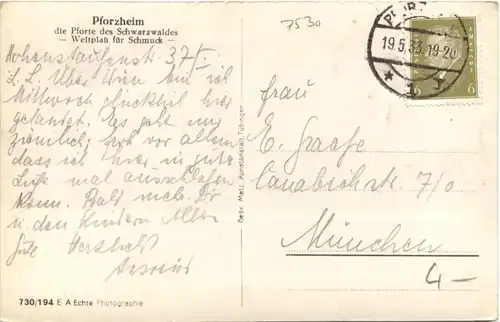 Pforzheim
die Pforte des Schwarzwaldes
– Weltplatz für Schmuck –
7530
PFORZ
19.5.33.19-20
* 1
6 6
Hohenstaufenstr. 37/I
L. L. Über Ulm bin ich
Mittwoch glücklich hier
gelandet. Es geht mir
ziemlich, froh vor allem
dass ich hier in guter
Luft mal ausschlafen
kann. Bald mehr. Dir
u. den Kindern Alles
Gute Herzlichst
Frau
E. Graefe
str. 7/0
München
4–
Gebr. Metz, Kunstanstalt, Tübingen
730/194 E. A Echte Photographie